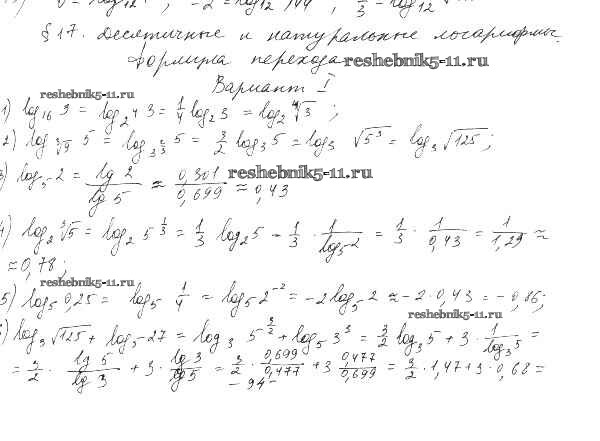 § 17. Десятичные и натуральные логарифмы.
Формула перехода reshebnik5-11.ru
Вариант I
reshebnik5-11.ru
1) log₁₆ 3 = log_{2⁴} 3 = 1/4 log₂ 3 = log₂ ⁴√3 ;
2) log_{∛9} 5 = log_{3^{2/3}} 5 = 3/2 log₃ 5 = log₃ √5³ = log₃ √125;
3) log₅ 2 = lg 2 / lg 5 ≈ 0,301 / 0,699 ≈ 0,43 reshebnik5-11.ru
4) log₂ ∛5 = log₂ 5^{1/3} = 1/3 log₂ 5 = 1/3 · 1/log₅ 2 = 1/3 · 1/0,43 = 1/1,29 ≈
≈ 0,78;
reshebnik5-11.ru
5) log₅ 0,25 = log₅ 1/4 = log₅ 2⁻² = -2 log₅ 2 ≈ -2 · 0,43 = -0,86;
reshebnik5-11.ru
) log₃ √125 + log₅ 27 = log₃ 5^{3/2} + log₅ 3³ = 3/2 log₃ 5 + 3 · 1/log₃ 5 =
= 3/2 · lg 5 / lg 3 + 3 · lg 3 / lg 5 = 3/2 · 0,699 / 0,477 + 3 0,477 / 0,699 = 3/2 · 1,47 + 3 · 0,68 =
- 94 -